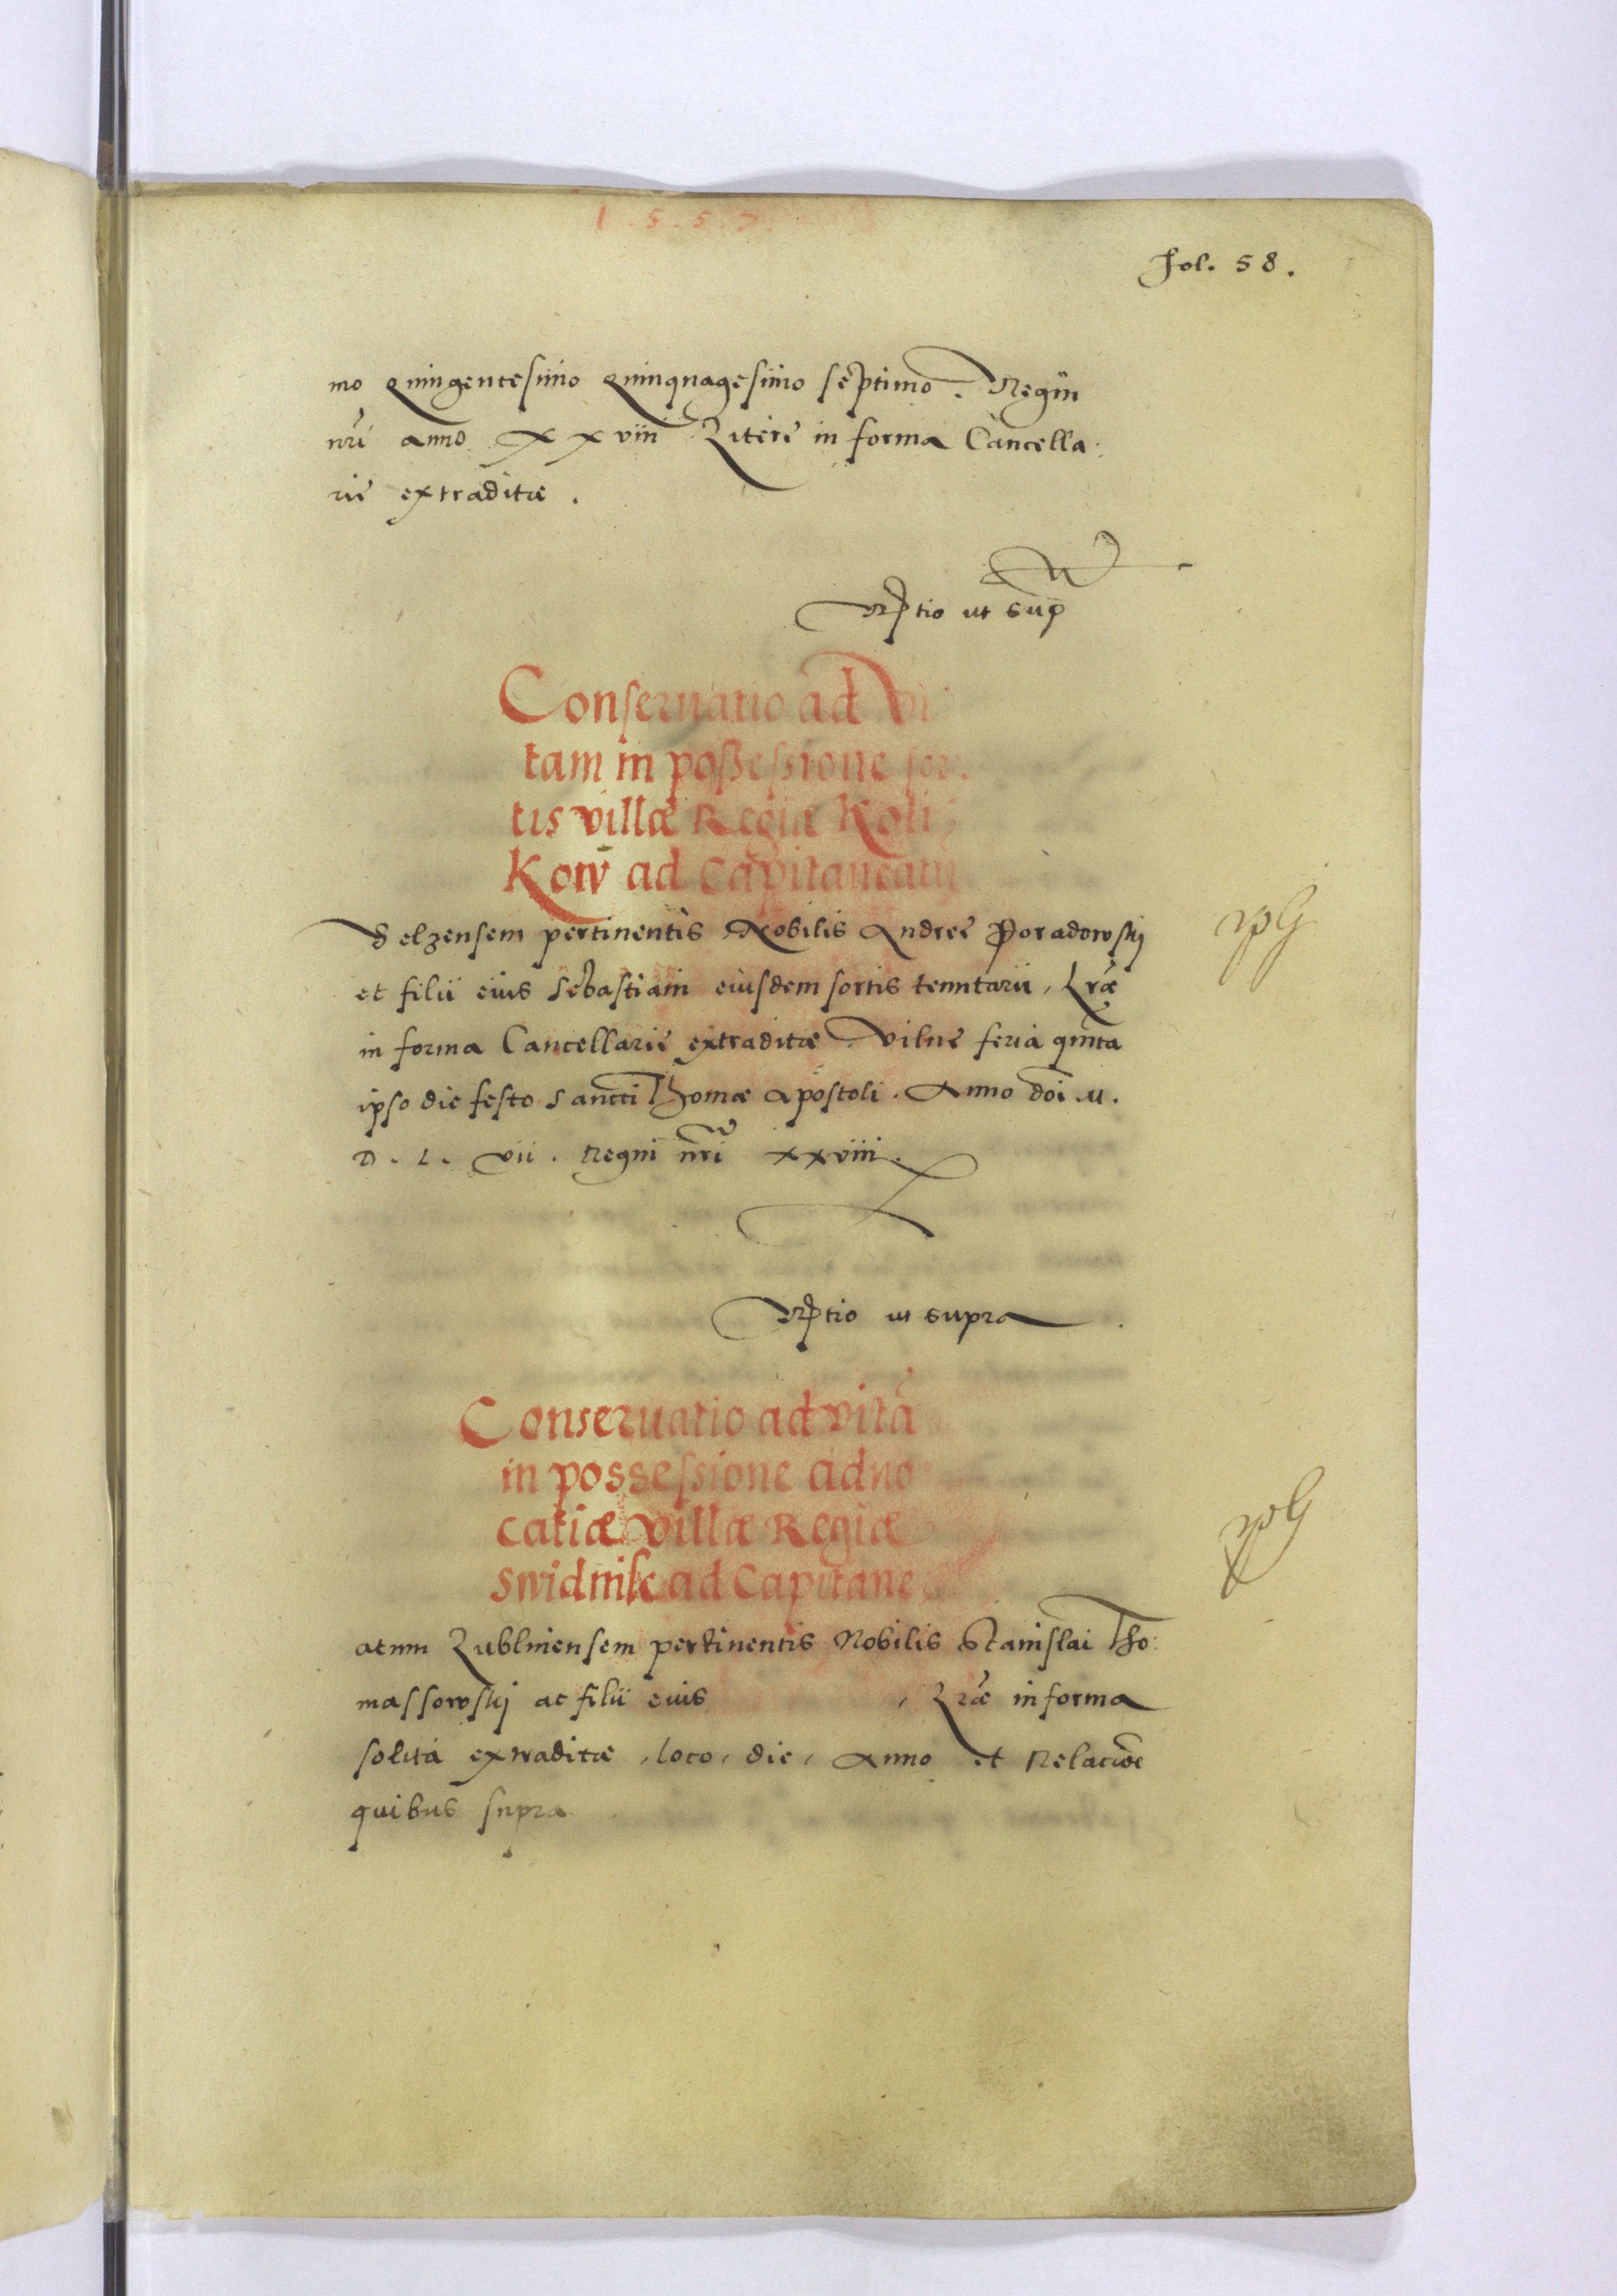 1.5.5.7.
Fol. 58.
mo Quingentesimo Quinquagesimo septimo. Regni
nri anno XXviii Litere in forma Cancella:
rie extraditæ.
ut sup
Conseruatio ad vi
tam in possessione sor
tis villæ Regiæ Koli
Kow ad Capitaneatu
Belzensem pertinentis Nobilis Andree Poradowskj
et filii eius Sebastiani eiusdem sortis tenutarii, Lræ
in forma Cancellarie extraditæ. Vilne feria quinta
ipso die festo Sancti Thomæ Apostoli. Anno doi. M.
D. L. vii. Regni nri xxviii.
ut supra
Conseruatio ad vitã
in possessione aduo
catiæ villæ Regiæ
Swidnik ad Capitane
atum Lublinensem pertinentis Nobilis Stanislai Tho:
massowskj ac filii eius , Lræ in forma
solita extraditæ, loco, die, Anno et Relacõe
quibus supra